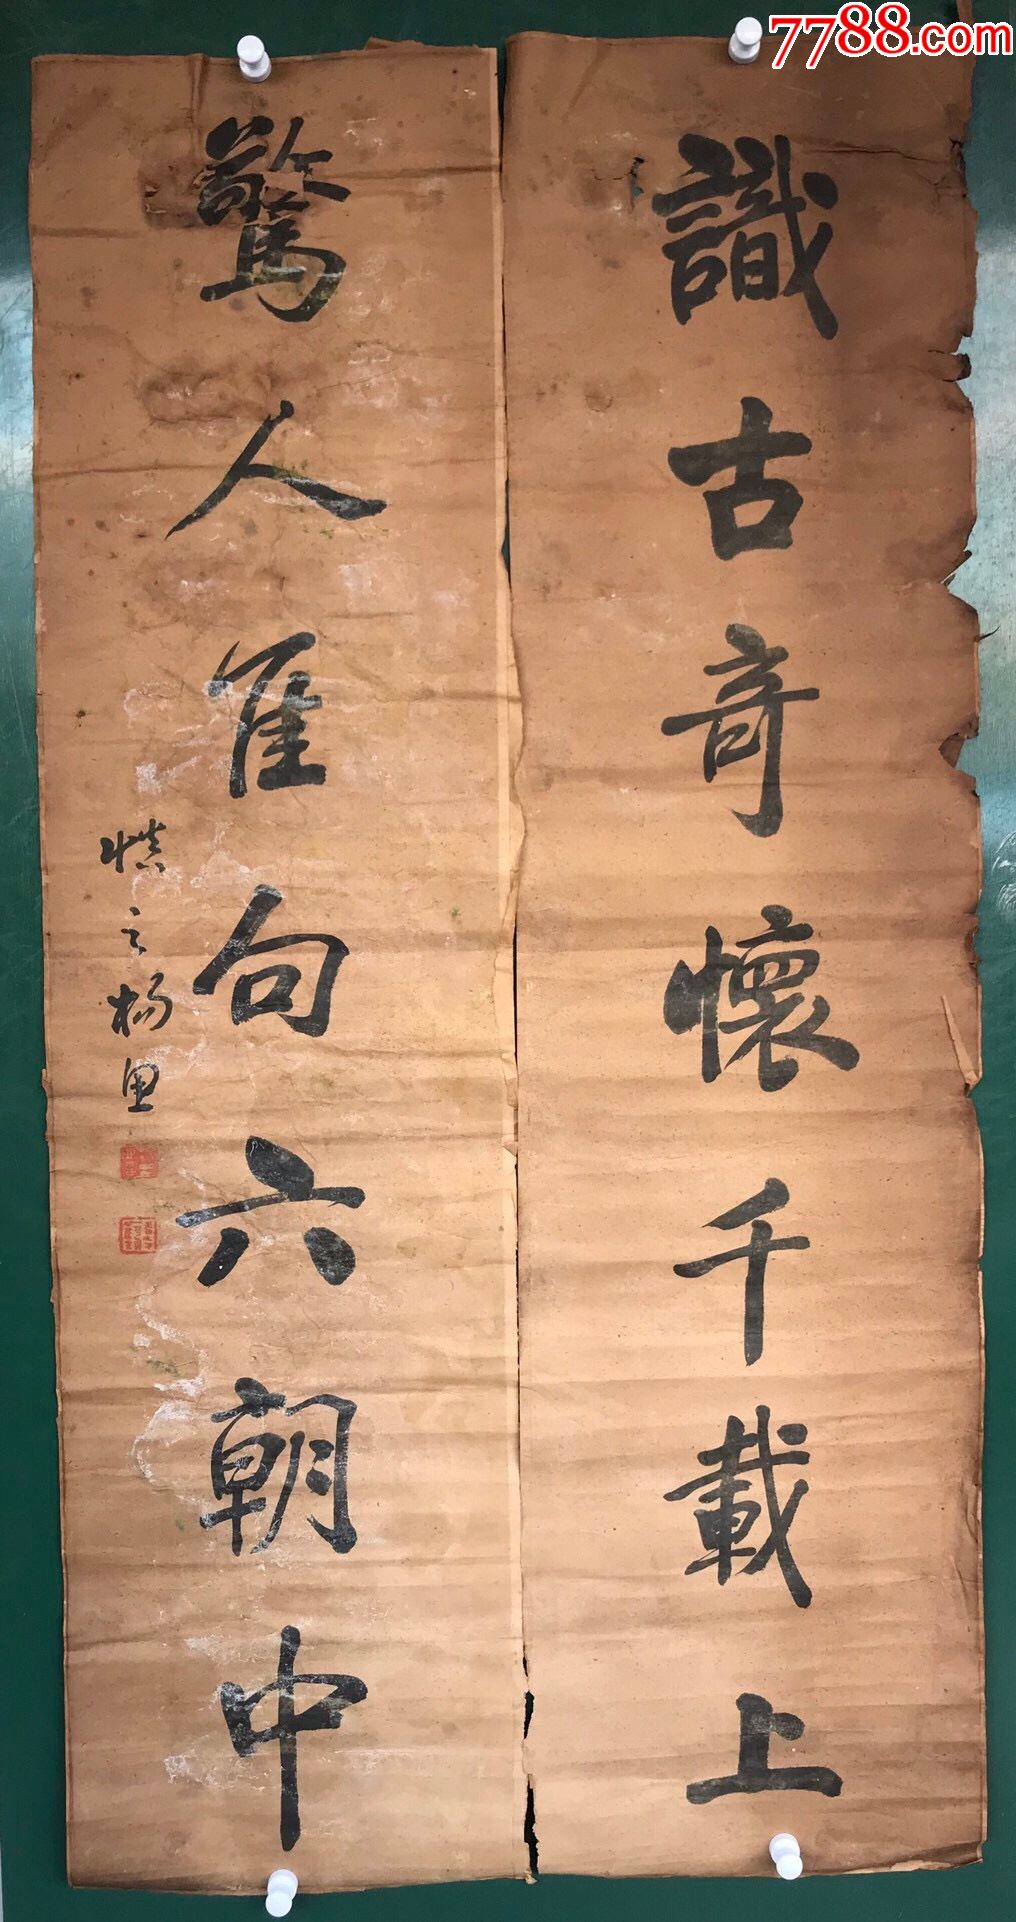 7788.com
識古竒懷千載上
驚人佳句六朝中
慎之楊